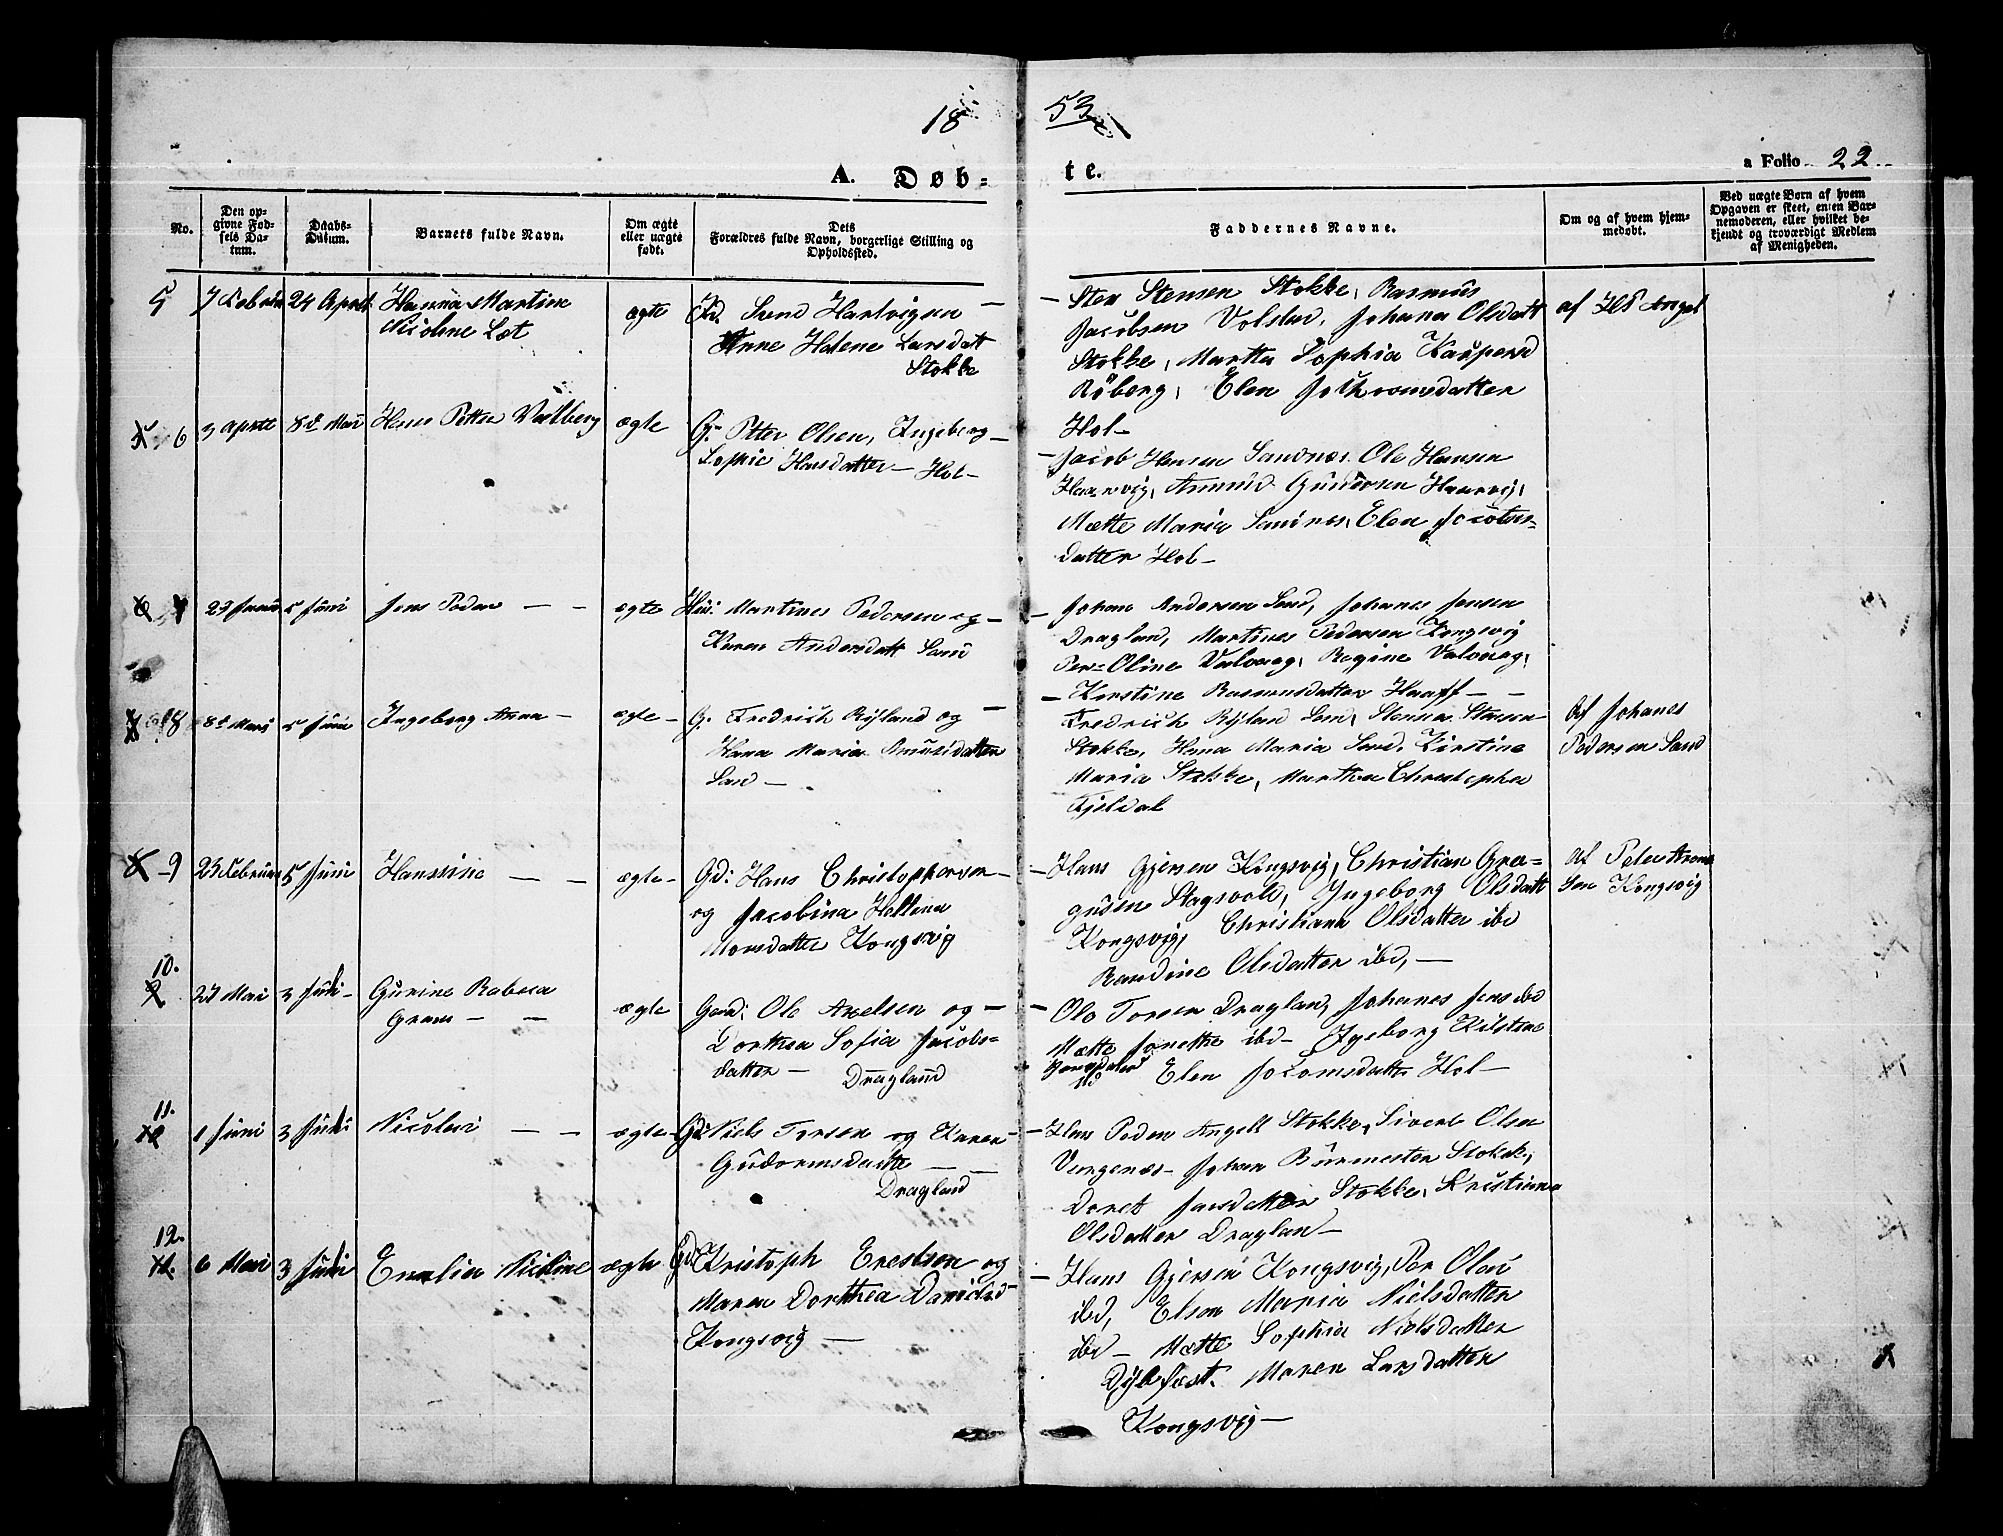 18 53
A. Døb- te.
a Folio 22
No.
Den op-
givne Fød-
sels Da-
tum.
Daabs-
Datum.
Barnets fulde Navn.
Om ægte
eller uægte
født.
Dets
Forældres fulde Navn, borgerlige Stilling og
Opholdssted.
Faddernes Navne.
Om og af hvem hjem-
medøbt.
Ved uægte Born af hvem
Opgaven er skeet, enten Bar-
nemoderen, eller hvilket be-
kjendt og troværdigt Medlem
af Menigheden.
5 7 Februar 24 April Hanna Martine
Nicoline Lot
ægte
Gd. Svend Hartvigsen —
Anne Helene Larsdatt
Stokke
— Sten Stensen Stokke, Rasmus
Jacobsen Volstad, Johana Olsdatt
Stokke, Martha Sophia Kaspersd
Røberg, Elen
Hol —
af Angel
6 3 April 8de Mai Hans Petter
ægte
G. Petter Olsen, Ingeborg —
Sophie Hansdatter — Hol —
— Jacob Hansen Sandnes. Ole Hansen
Haarvig, Amund Haarvig,
Mætte Maria Sandnes, Elen
datter Hol —
7 5 Juni Jens Peder — —
ægte
Hus: Martines Pedersen og —
Karen Andersdatt Sand
— Johan Andersen Sand, Johanes Jensen
Dragland, Martines Pedersen Kongsvig
Oline Valvaag, Regine Valvaag,
— Kirstine Rasmusdatter Haaff — —
8 8de Mars 5 Juni Ingeborg Anna —
ægte —
G. Fredrich Rysland og —
Hana Maria Amundsdatter
Sand —
Fredrich Rysland Sand, Stensen
Stokke, Hana Maria Sand, Kirstine
Maria Stokke, Martha Christopha
Fjeldal
Af Johanes
Pedersen Sand
9 23 Februar 5 Juni Hansine — —
ægte —
Gd: Hans Christophersen —
og Jacobina Hellina
Monsdatter Kongsvig
— Hans Gjersen Kongsvig, Christian Gree-
gusen Stagsvold, Ingeborg Olsdatt
Kongsvig, Christiana Olsdatter ibd
Randine Olsdatter ibd, —
af Peter
sen Kongsvig
10.
27 Mai 3 Juli — Gurine Rebeca
Gram — —
ægte
Gaard: Ole Axelsen og —
Dorthea Sofia Jacobs-
datter — Dragland
— Ole Torsen Dragland, Johanes Jens ibd
Mætte Jonetha ibd — Igeborg Kistine
ibd Elen Hol —
11.
1 Juni 3 Juli Nicolai — —
ægte —
Gd: Niels Torsen og Karen
Gudormsdatte — —
Dragland
— Hans Peder Angell Stokke, Sivert Olsen
Vangenæs — Johan Burmester Stokke,
Doret Jansdatter Stokke, Kristiana
Olsdatter Draglan —
12.
6 Mai 3 Juli Emelia Nicoline
ægte
Gd: Kristoph Erestsen og
Maren Dorthea Danielsd
Kongsvig —
— Hans Gjersen Kongsvig, Per Olai
ibd, Elsen Maria Nielsdatter
ibd — Mætte Sophia Nielsdatter
Dybfæst. Maren Larsdatter
Kongsvig —